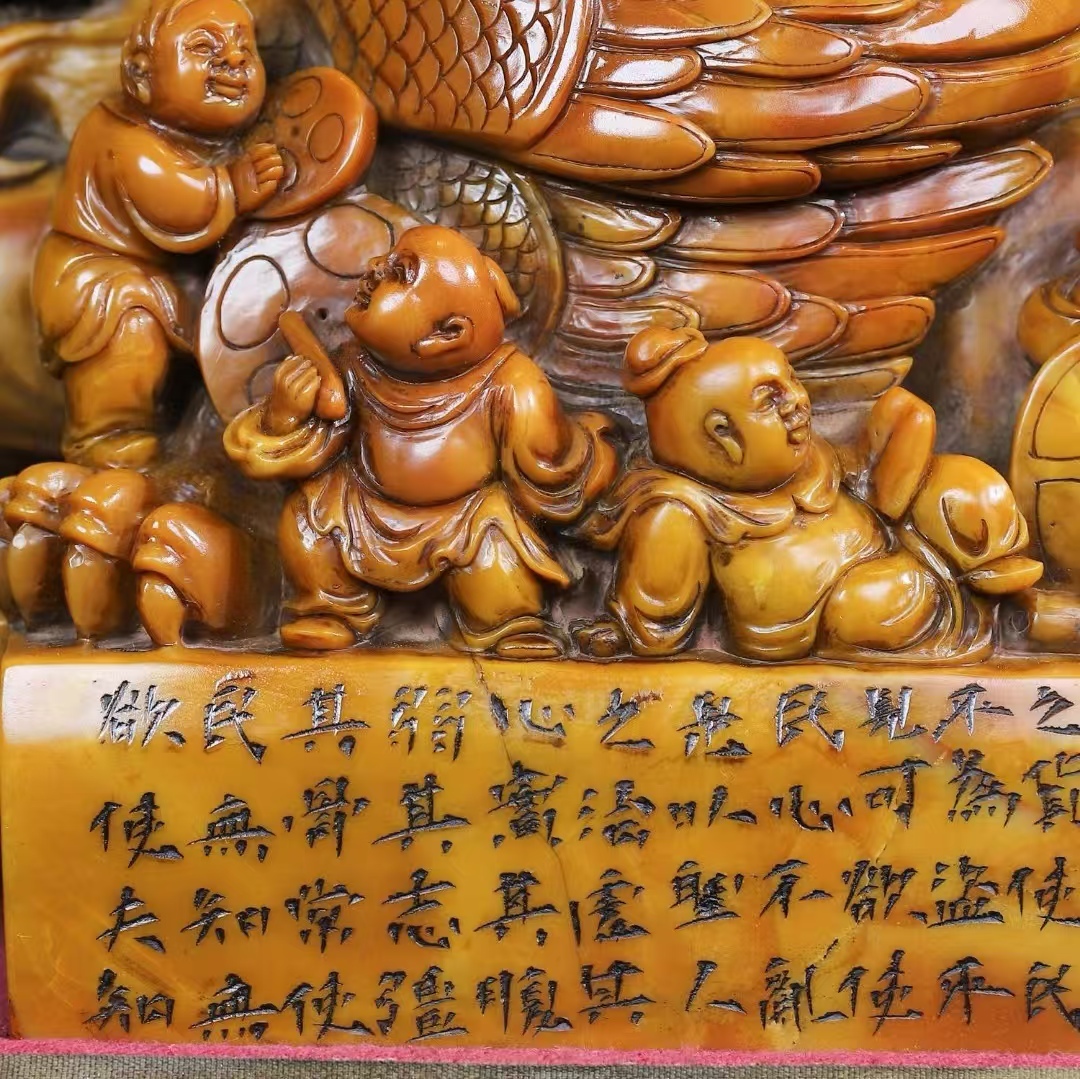 之貨使民
不為盜不
見可欲使
民心不亂
是以聖人
之治虛其
心實其腹
弱其志彊
其骨常使
民無知無
欲使夫知